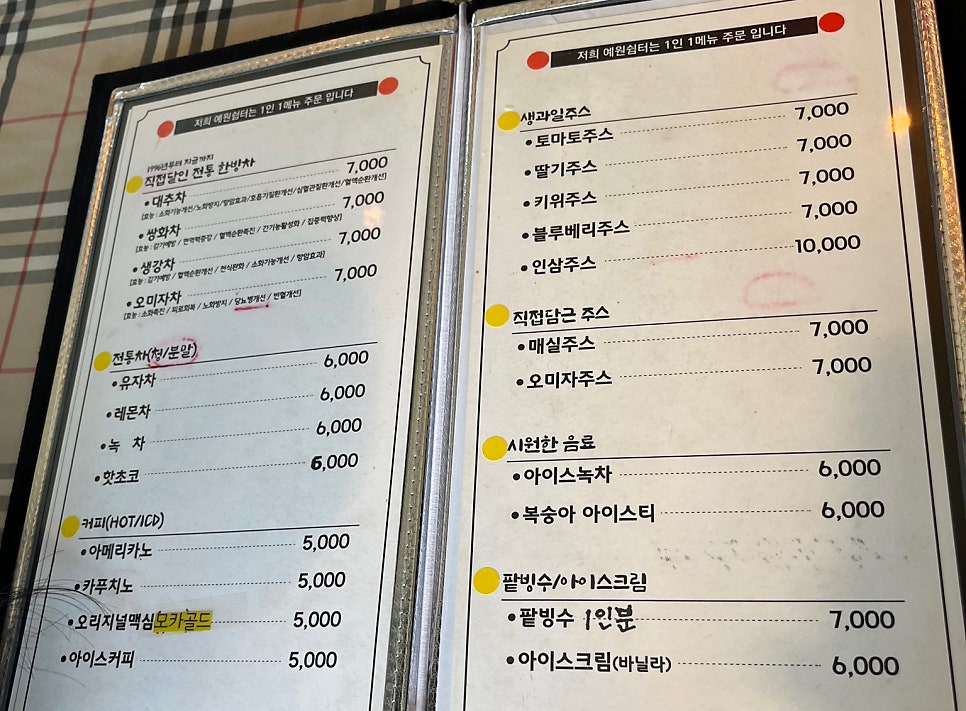 저희 예원쉼터는 1인 1메뉴 주문 입니다
1996년부터 지금까지
직접달인 전통 한방차
•대추차 7,000
[효능 : 소화기능개선/노화방지/항암효과/호흡기질환개선/심혈관질환개선/혈액순환개선]
•쌍화차 7,000
[효능 : 감기예방 / 면역력증강 / 혈액순환촉진 / 간기능활성화 / 집중력향상]
•생강차 7,000
[효능 : 감기예방 / 혈액순환개선 / 천식완화 / 소화기능개선 / 항암효과]
•오미자차 7,000
[효능 : 소화촉진 / 피로회복 / 노화방지 / 당뇨병개선 / 빈혈개선]
전통차(청/분말)
•유자차 6,000
•레몬차 6,000
•녹 차 6,000
•핫초코 6,000
커피(HOT/ICD)
•아메리카노 5,000
•카푸치노 5,000
•오리지널맥심모카골드 5,000
•아이스커피 5,000
저희 예원쉼터는 1인 1메뉴 주문 입니다
생과일주스
•토마토주스 7,000
•딸기주스 7,000
•키위주스 7,000
•블루베리주스 7,000
•인삼주스 10,000
직접담근 주스
•매실주스 7,000
•오미자주스 7,000
시원한 음료
•아이스녹차 6,000
•복숭아 아이스티 6,000
팥빙수/아이스크림
•팥빙수 1인분 7,000
•아이스크림(바닐라) 6,000